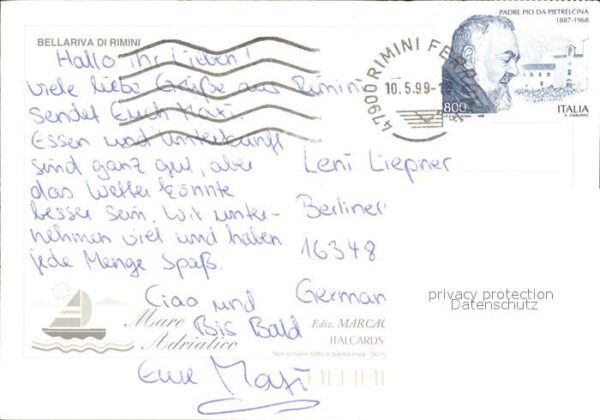 BELLARIVA DI RIMINI
Hallo ihr Lieben!
Viele liebe Grüße aus Rimini
sendet Euch Maxi.
Essen und Unterkunft
sind ganz gut, aber
das Wetter könnte
besser sein. Wir unter-
nehmen viel und haben
jede Menge Spaß.
Ciao und
Bis Bald
Eure Maxi
PADRE PIO DA PIETRELCINA
1887-1968
800
ITALIA
47900 RIMINI
10.5.99-1
Leni Liepner
Berliner
16348
German
privacy protection
Datenschutz
Mare
Adriatico
Ediz. MARCA
ITALCARDS
Non scrivere sotto a questa linea